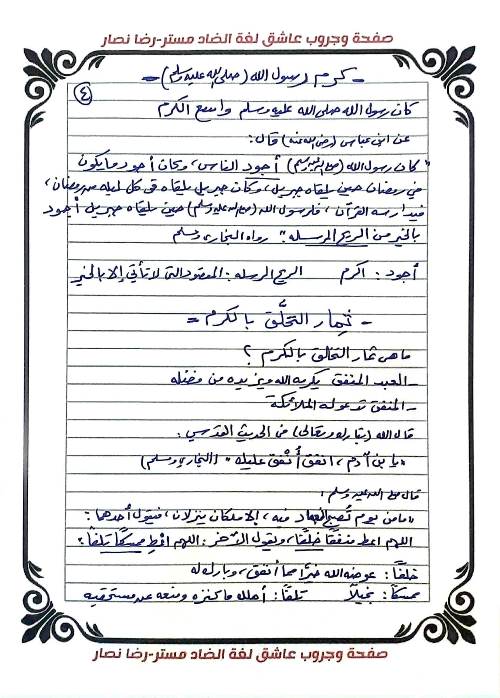 صفحة وجروب عاشق لغة الضاد مستر-رضا نصار
- كرم رسول الله (صلى الله عليه وسلم) -
٤
كان رسول الله صلى الله عليه وسلم واسع الكرم
عن ابن عباس (رضى الله عنه) قال:
"كان رسول الله (صلى الله عليه وسلم) أجود الناس، وكان أجود ما يكون
في رمضان حين يلقاه جبريل، وكان جبريل يلقاه فى كل ليله من رمضان،
فيدارسه القرآن، فلرسول الله (صلى الله عليه وسلم) حين يلقاه جبريل أجود
بالخير من الريح المرسله" رواه البخارى ومسلم
أجود: اكرم الريح المرسله: المقصود التى لا تأتي إلا بالخير
- ثِمار التخلَّق بالكرم -
ما هى ثمار التخلق بالكرم ؟
- العبد المنفق يكرمه الله ويزيده من فضله
- المنفق تدعو له الملائكة
قال الله (تبارك وتعالى) فى الحديث القدسي:
"يا بن آدم، انفق أُنْفق عليك" (البخارى ومسلم)
قال صلى الله عليه وسلم:
"ما من يوم تُصبح العباد فيه، إلا ملكان ينزلان، فيقول أحدهما:
اللهم اعط منفقًا خلفًا، ويقول الآخر: اللهم اعْطِ ممسكًا تلفًا"
خلفًا: عوضه الله خيرًا مما أنفق، وبارك له
ممسكًا: بخيلًا تلفًا: أهلك ما كنزه ومنعه عن مستحقيه
صفحة وجروب عاشق لغة الضاد مستر-رضا نصار